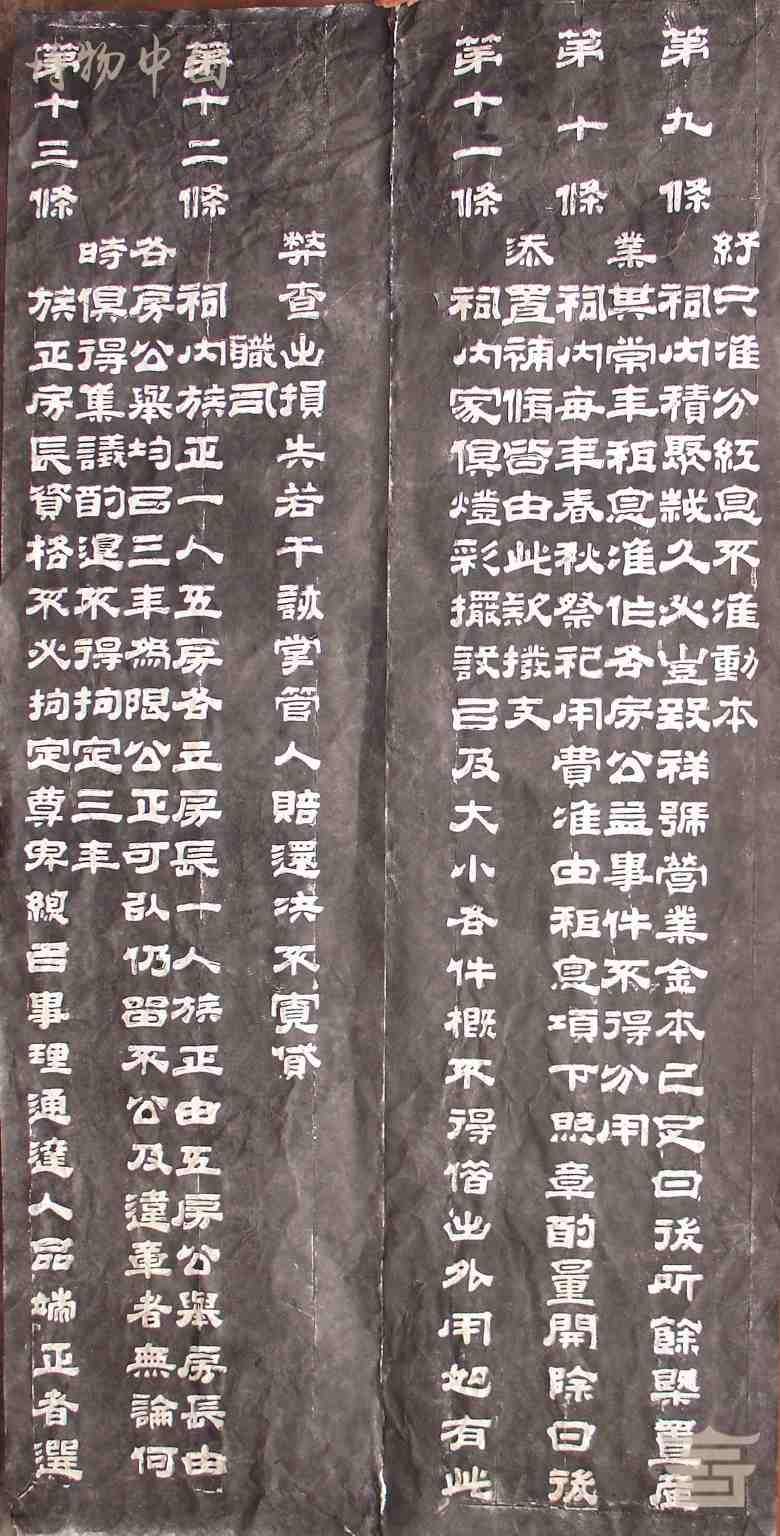 紓只准分紅息不准動本
第九條 祠內積聚款久必豈致祥號營業金本已足日後所餘槩置產
業其常年租息准作各房公益事件不得分用
第十條 祠內每年春秋祭祀用費准由租息項下照章酌量開除日後
添置補脩皆由此款撥支
第十一條 祠內家俱燈彩擺設㠯及大小各件概不得借出外用如有此
弊查出損失若干誠掌管人賠還決不寬貸
職司
第十二條 祠內族正一人五房各立房長一人族正由五房公舉房長由
各房公舉均㠯三年為限公正可以仍留不公及違章者無論何
時俱得集議酌退不得拘定三年
第十三條 族正房長資格不必拘定尊卑總㠯事理通達人品端正者選
博物中国